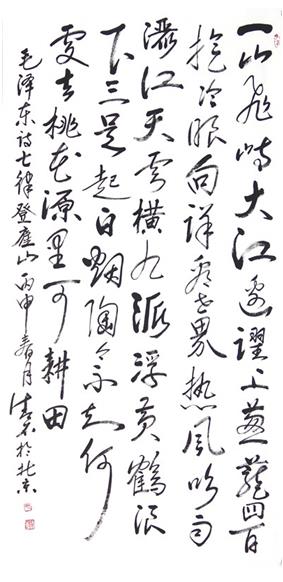 一山飛峙大江邊躍上蔥蘢四百
旋冷眼向洋看世界热風吹雨
灑江天雲橫九派浮黄鶴浪
下三吴起白煙陶令不知何
處去桃花源里可耕田
毛泽东诗七律登庐山丙申春月於北京